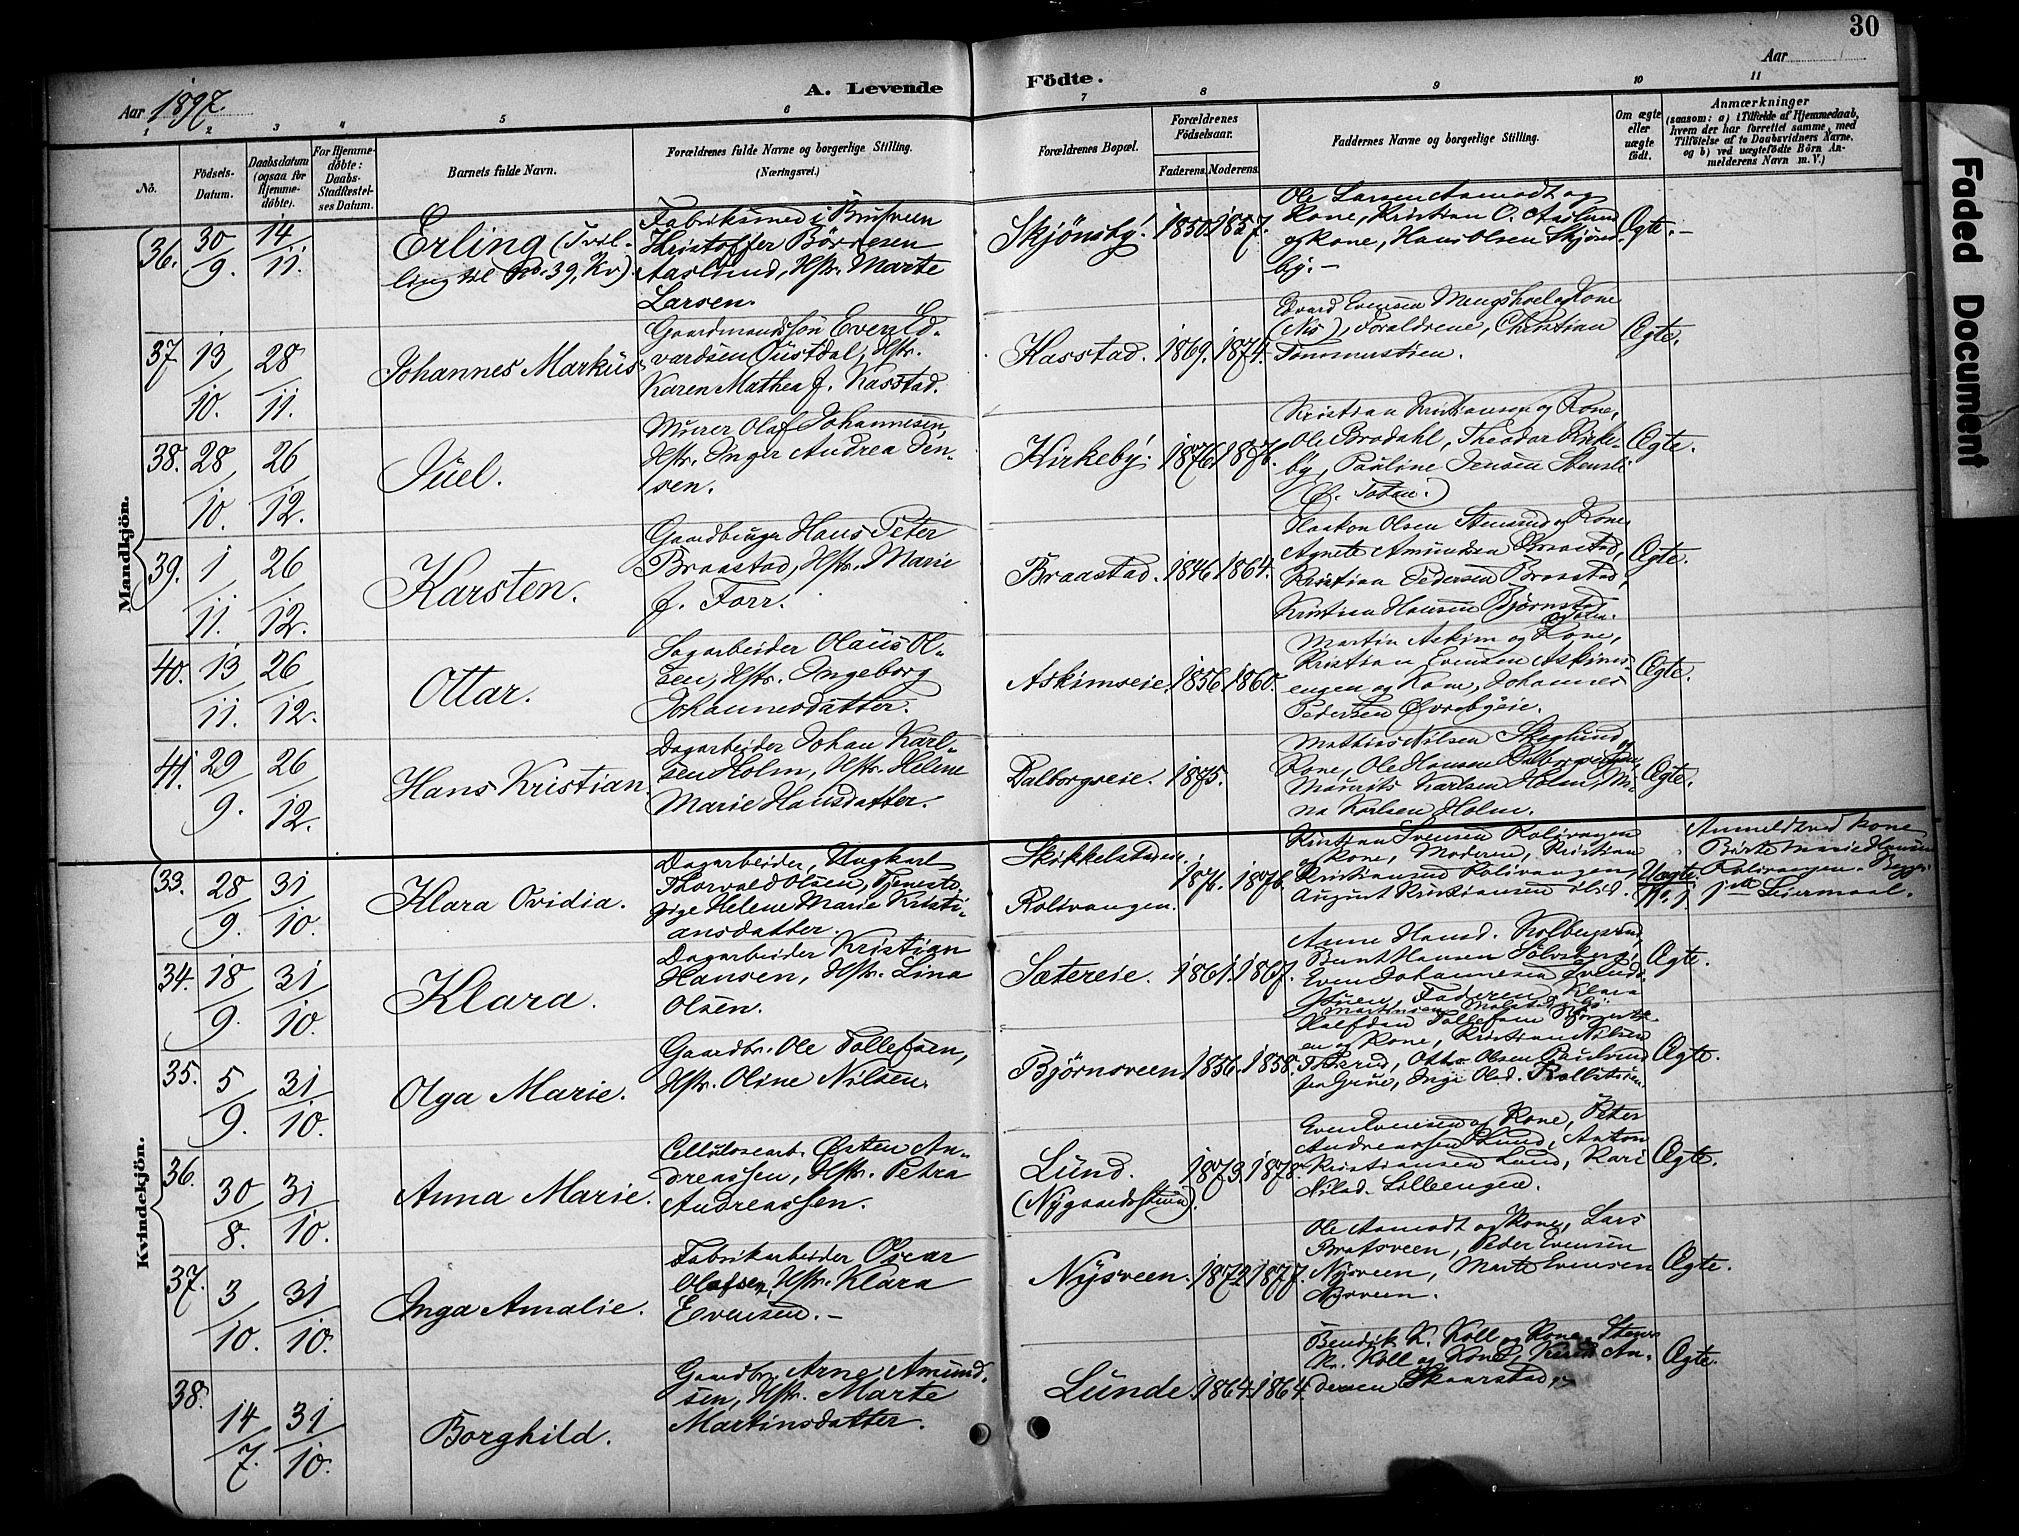 30
Aar 1897.
A. Levende Födte.
Aar
1 2 3 4 5 6 7 8 9 10 11
No.
Födsels-Datum.
Daabsdatum (ogsaa for Hjemmedöbte).
For Hjemmedöbte: Daabs-Stadfæstelses Datum.
Barnets fulde Navn.
Forældrenes fulde Navne og borgerlige Stilling. (Næringsvei.)
Forældrenes Bopæl.
Forældrenes Födselsaar.
Faderens. Moderens.
Faddernes Navne og borgerlige Stilling.
Om ægte eller uægte födt.
Anmærkninger
(saasom: a) i Tilfælde af Hjemmedaab, hvem der har forrettet samme, med Tilföielse af to Daabsvidners Navne, og b) ved uægtefödte Börn Anmelderens Navn m. V.)
Faded Document
Mandkjön.
36. 30/9 14/11.
Erling (Tvilling til No. 39, Kv).
Kristoffer Börresen
Aaslund, Hstr. Marte
Larsen.
Skjönsby. 1850. 1857.
Ole Larsen Aamodt og
Kone, Kristian O. Aaslund
og Kone, Hans Olsen Skjönsby.-
Ægte.-
37 13/10. 28/11.
Johannes Markus
Gaardmandssön Even Edvardsen
Hstr.
Karen Mathea f. Kasstad.
Kasstad. 1869. 1874.
Edvard Evensen Mengshoel og Kone
(Nes), Forældrene, Christian
Ægte.
38. 28/10. 26/12.
Juel.
Murer Olaf Johannesen,
Hstr. Inger Andrea Jensen.
Kirkeby. 1876. 1876.
Kristian Kristiansen og Kone,
Ole Brodahl, Theodor Kirkeby,
Pauline Jensen Stensli
(Ø. Toten.)
Ægte.
39. 1/11. 26/12.
Karsten.
Gaardbruger Hans Peter
Braastad, Hstr. Marie
f. Forr.
Braastad. 1846. 1864.
Haakon Olsen Stensrud og Kone
Agnete Amundsen Braastad,
Kristian Pedersen Braastad,
Kristian Hansen Björnstad
Ægte.
40. 13/11. 26/12.
Ottar.
Sagarbeider Olaus Olsen,
Hstr. Ingeborg
Johannesdatter.
Askimseie. 1856. 1860.
Martin Askim og Kone,
Kristian Evensen Askimsengen
og Kone, Johannes
Pedersen Øvrebyeie.
Ægte.
41. 29/9. 26/12.
Hans Kristian.
Dagarbeider Johan Karlsen
Holm, Hstr. Helene
Marie Hansdatter.
Dalborgseie. 1875.
Mathias Nilsen Skoglund og
Kone, Ole Hansen Dalborgseie,
Mauritz Karlsen Holm, Mina
Karlsen Holm.
Ægte.
Kvindekjön.
33. 28/9. 31/10.
Klara Ovidia.
Dagarbeider, Ungkarl
Thorvald Olsen, Tjenestepige
Helene Marie Kristiansdatter.
Skikkelstadeie.
Rolivangen.
1876. 1876.
Kristian Svensen Rolivangen
og Kone, Moderen, Kristian
Kristiansen Rolivangen,
August Kristiansen ibid.
Uægte.
Anmeldt ved Kone
Birte Marie Hansen
Rolivangen. Begges
1ste Leiermaal.
34. 18/9. 31/10.
Klara.
Dagarbeider Kristian
Hansen, Hstr. Lina
Olsen.
Sætereie. 1861. 1867.
Anne Hansd. Kolbergrud,
Bernt Hansen Sölvsberg,
Even Johannesen
Faderen, Klara
Martinsen
Ægte.
35. 5/9. 31/10.
Olga Marie.
Gaardbr. Ole Tollefsen,
Hstr. Oline Nilsen.
Björnsveen. 1856. 1858.
Halfdan Tollefsen
og Kone, Kristian Nilsen
Otto Olsen Paulsrud
fra Grue, Inga Olsd.
Ægte.
36. 30/8. 31/10.
Anna Marie.
Cellulosearb. Østen Andreassen,
Hstr. Petra
Andreassen.
Lund.
(Nygaardsstuen).
1873. 1878.
Even Evensen og Kone, Peter
Andreassen Lund, Anton
Kristiansen Lund, Kari
Nilsd. Lilleengen.
Ægte.
37. 3/10. 31/10.
Inga Amalie.
Fabrikarbeider Oscar
Olafsen, Hstr. Klara
Evensen.-
Nysveen. 1872. 1877.
Ole Aamodt og Kone, Lars
Bratsveen, Peder Evensen
Nysveen, Marte Evensen
Nysveen.
Ægte.
38. 14/7. 31/10.
Borghild.
Gaardbr. Arne Amundsen,
Hstr. Marte
Martinsdatter.
Lunde. 1864. 1864.
Bendik K. Koll og Kone,
K. Koll og Kone, Knud Andersen
Skaarstad.
Ægte.